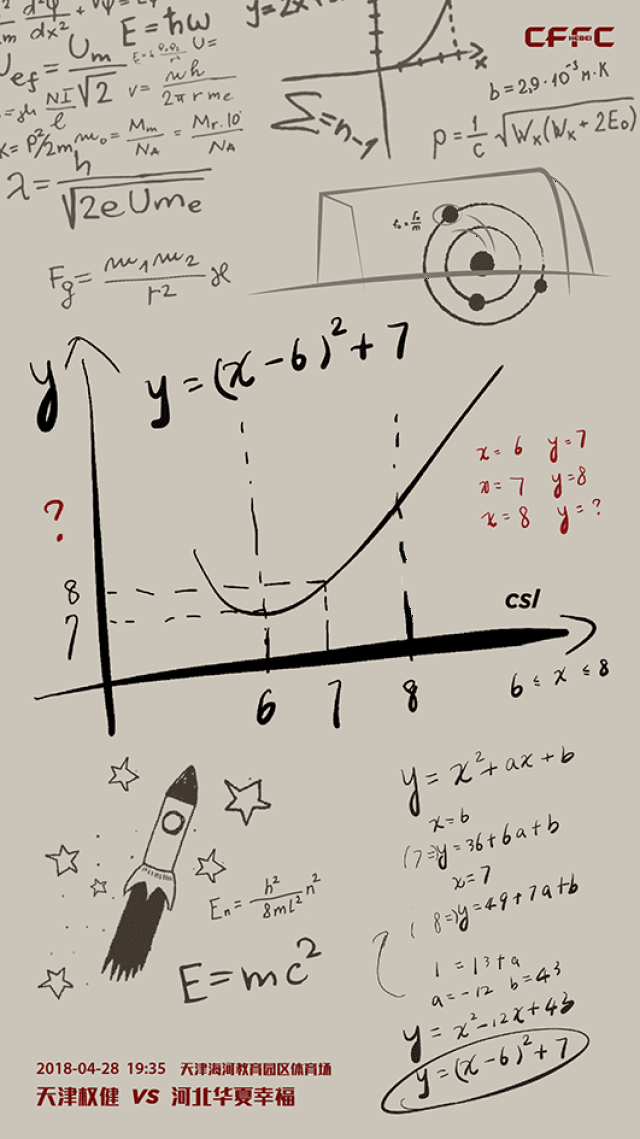 CFFC
HEBEI
E=ħω
Um
Uef=
√2
U=
v= wh/2πrme
NI/l
b=2,9·10⁻³ m·K
x
Σ=n-1
p=1/c √Wx(Wx+2E₀)
P²/2m
m₀= Mm/NA = Mr·10/NA
λ= h/√2eUme
Fg= m₁m₂/r² ϰ
y=(x-6)²+7
y
x=6 y=7
x=7 y=8
x=8 y=?
?
8
7
csl
6 7 8
6≤x≤8
y=x²+ax+b
x=6
(7=)y=36+6a+b
x=7
(8=)y=49+7a+b
1=13+a
a=-12 b=43
y=x²-12x+43
y=(x-6)²+7
En= h²/8ml² n²
E=mc²
2018-04-28 19:35 天津海河教育园区体育场
天津权健 VS 河北华夏幸福